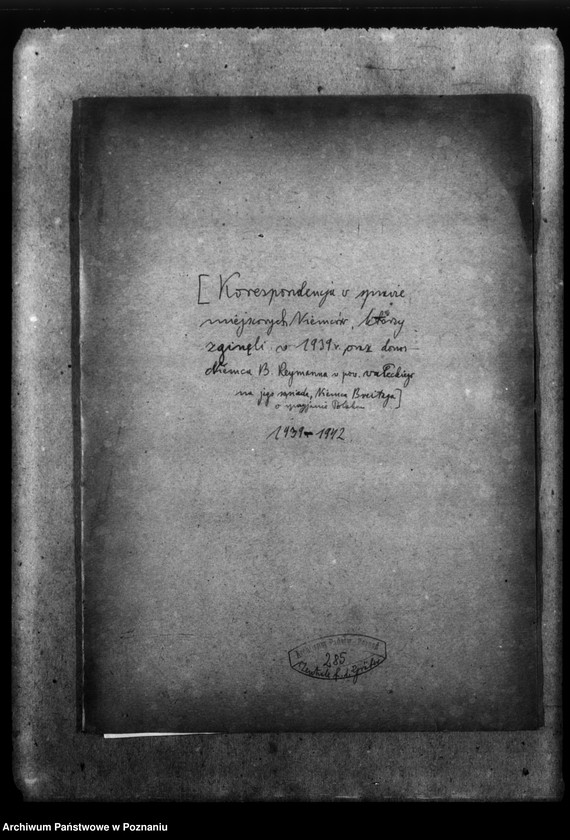 [Korespondencja w sprawie
miejscowych Niemców, którzy
zginęli w 1939 r. oraz donos
Niemca B. Reymanna w pow. wałeckiego
na jego sąsiada, Niemca
o Polakom
1939-1942
285
Archiwum Państwowe w Poznaniu